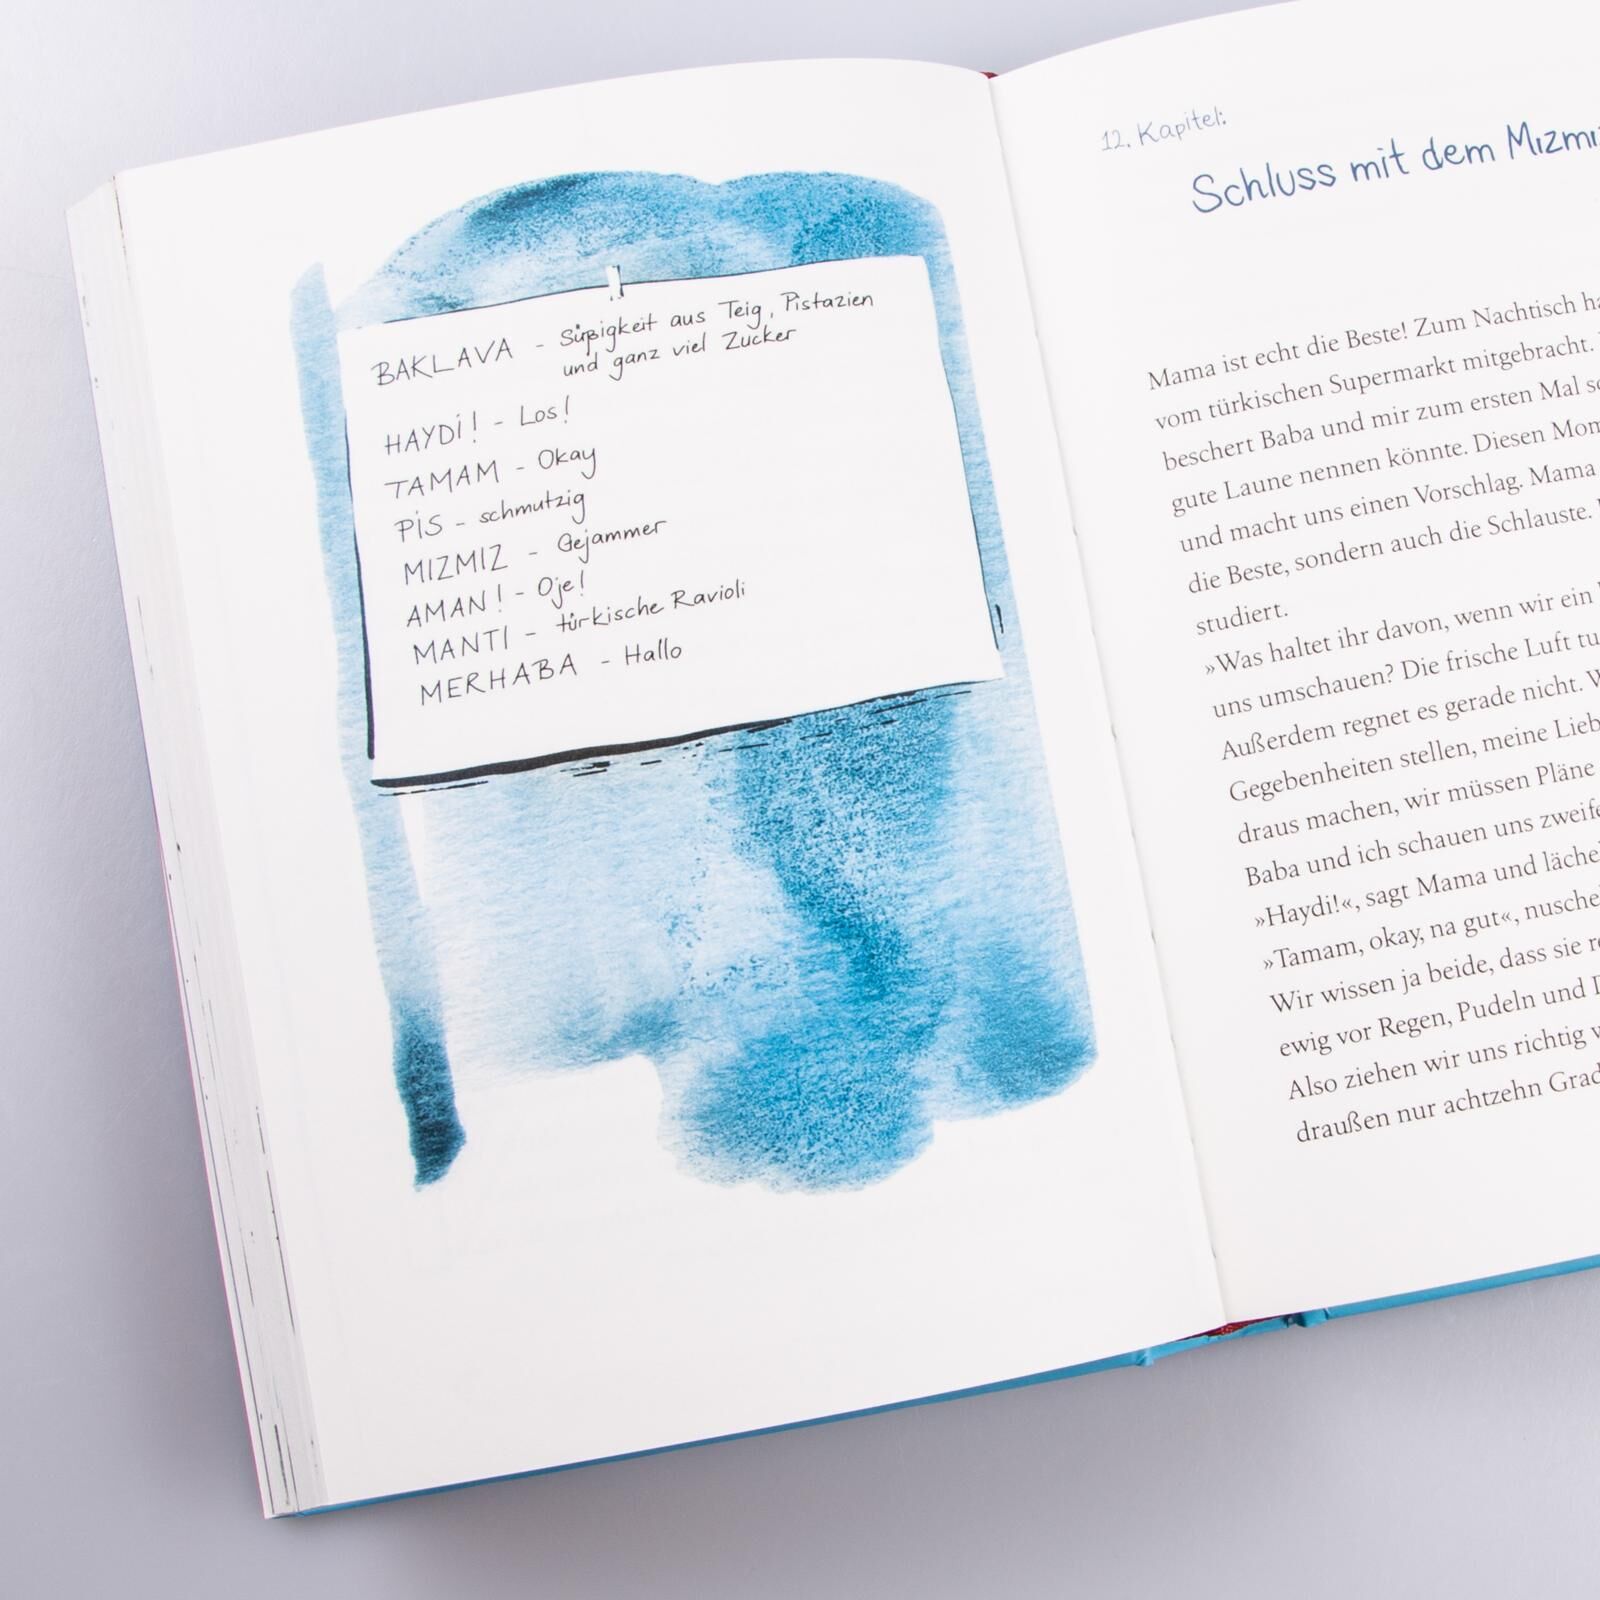 BAKLAVA - Süßigkeit aus Teig, Pistazien
und ganz viel Zucker
HAYDİ! - Los!
TAMAM - Okay
PİS - schmutzig
MIZMIZ - Gejammer
AMAN! - Oje!
MANTI - türkische Ravioli
MERHABA - Hallo
12. Kapitel:
Schluss mit dem Mızmı
Mama ist echt die Beste! Zum Nachtisch ha
vom türkischen Supermarkt mitgebracht.
beschert Baba und mir zum ersten Mal so
gute Laune nennen könnte. Diesen Mom
und macht uns einen Vorschlag. Mama
die Beste, sondern auch die Schlauste.
studiert.
»Was haltet ihr davon, wenn wir ein
uns umschauen? Die frische Luft tu
Außerdem regnet es gerade nicht. W
Gegebenheiten stellen, meine Lieb
draus machen, wir müssen Pläne
Baba und ich schauen uns zweife
»Haydi!«, sagt Mama und lächel
»Tamam, okay, na gut«, nusche
Wir wissen ja beide, dass sie re
ewig vor Regen, Pudeln und D
Also ziehen wir uns richtig w
draußen nur achtzehn Grad